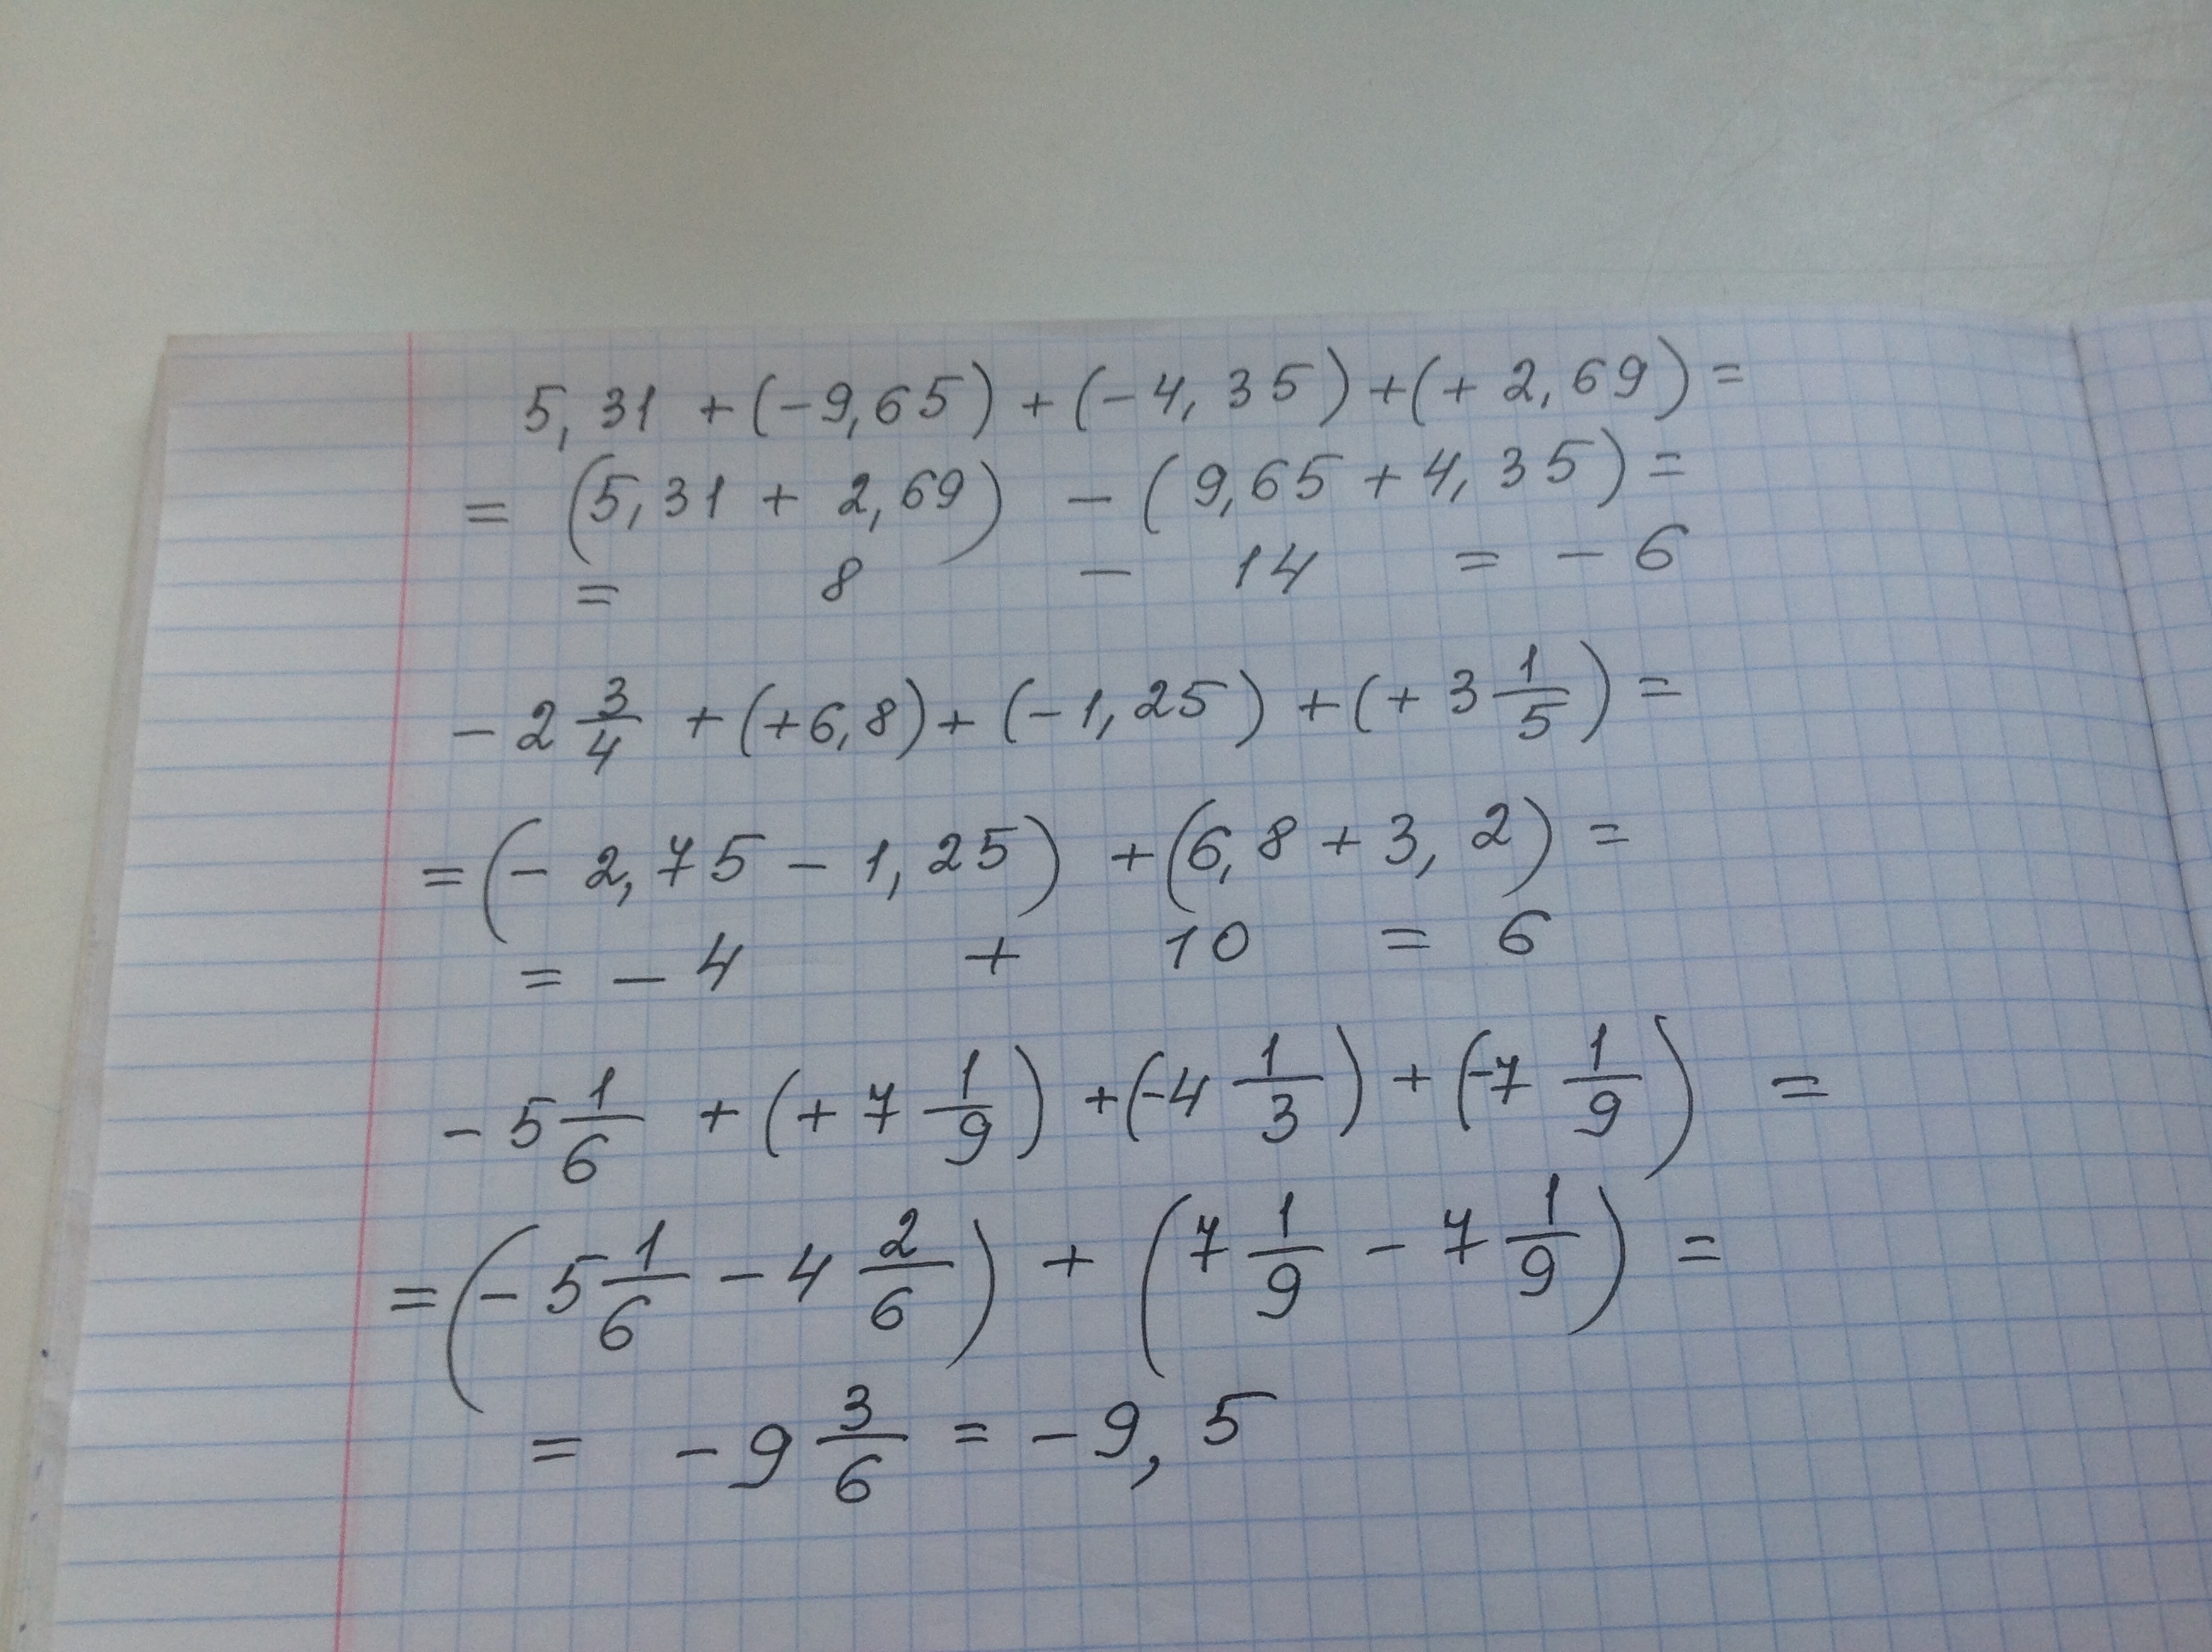 5,31 + (-9,65) + (-4,35) + (+ 2,69) =
= (5,31 + 2,69) - (9,65 + 4,35) =
= 8 - 14 = - 6
- 2 3/4 + (+6,8) + (-1,25) + (+ 3 1/5) =
= (- 2,75 - 1,25) + (6,8 + 3,2) =
= - 4 + 10 = 6
- 5 1/6 + (+ 7 1/9) + (-4 1/3) + (-7 1/9) =
= (- 5 1/6 - 4 2/6) + (7 1/9 - 7 1/9) =
= - 9 3/6 = - 9,5